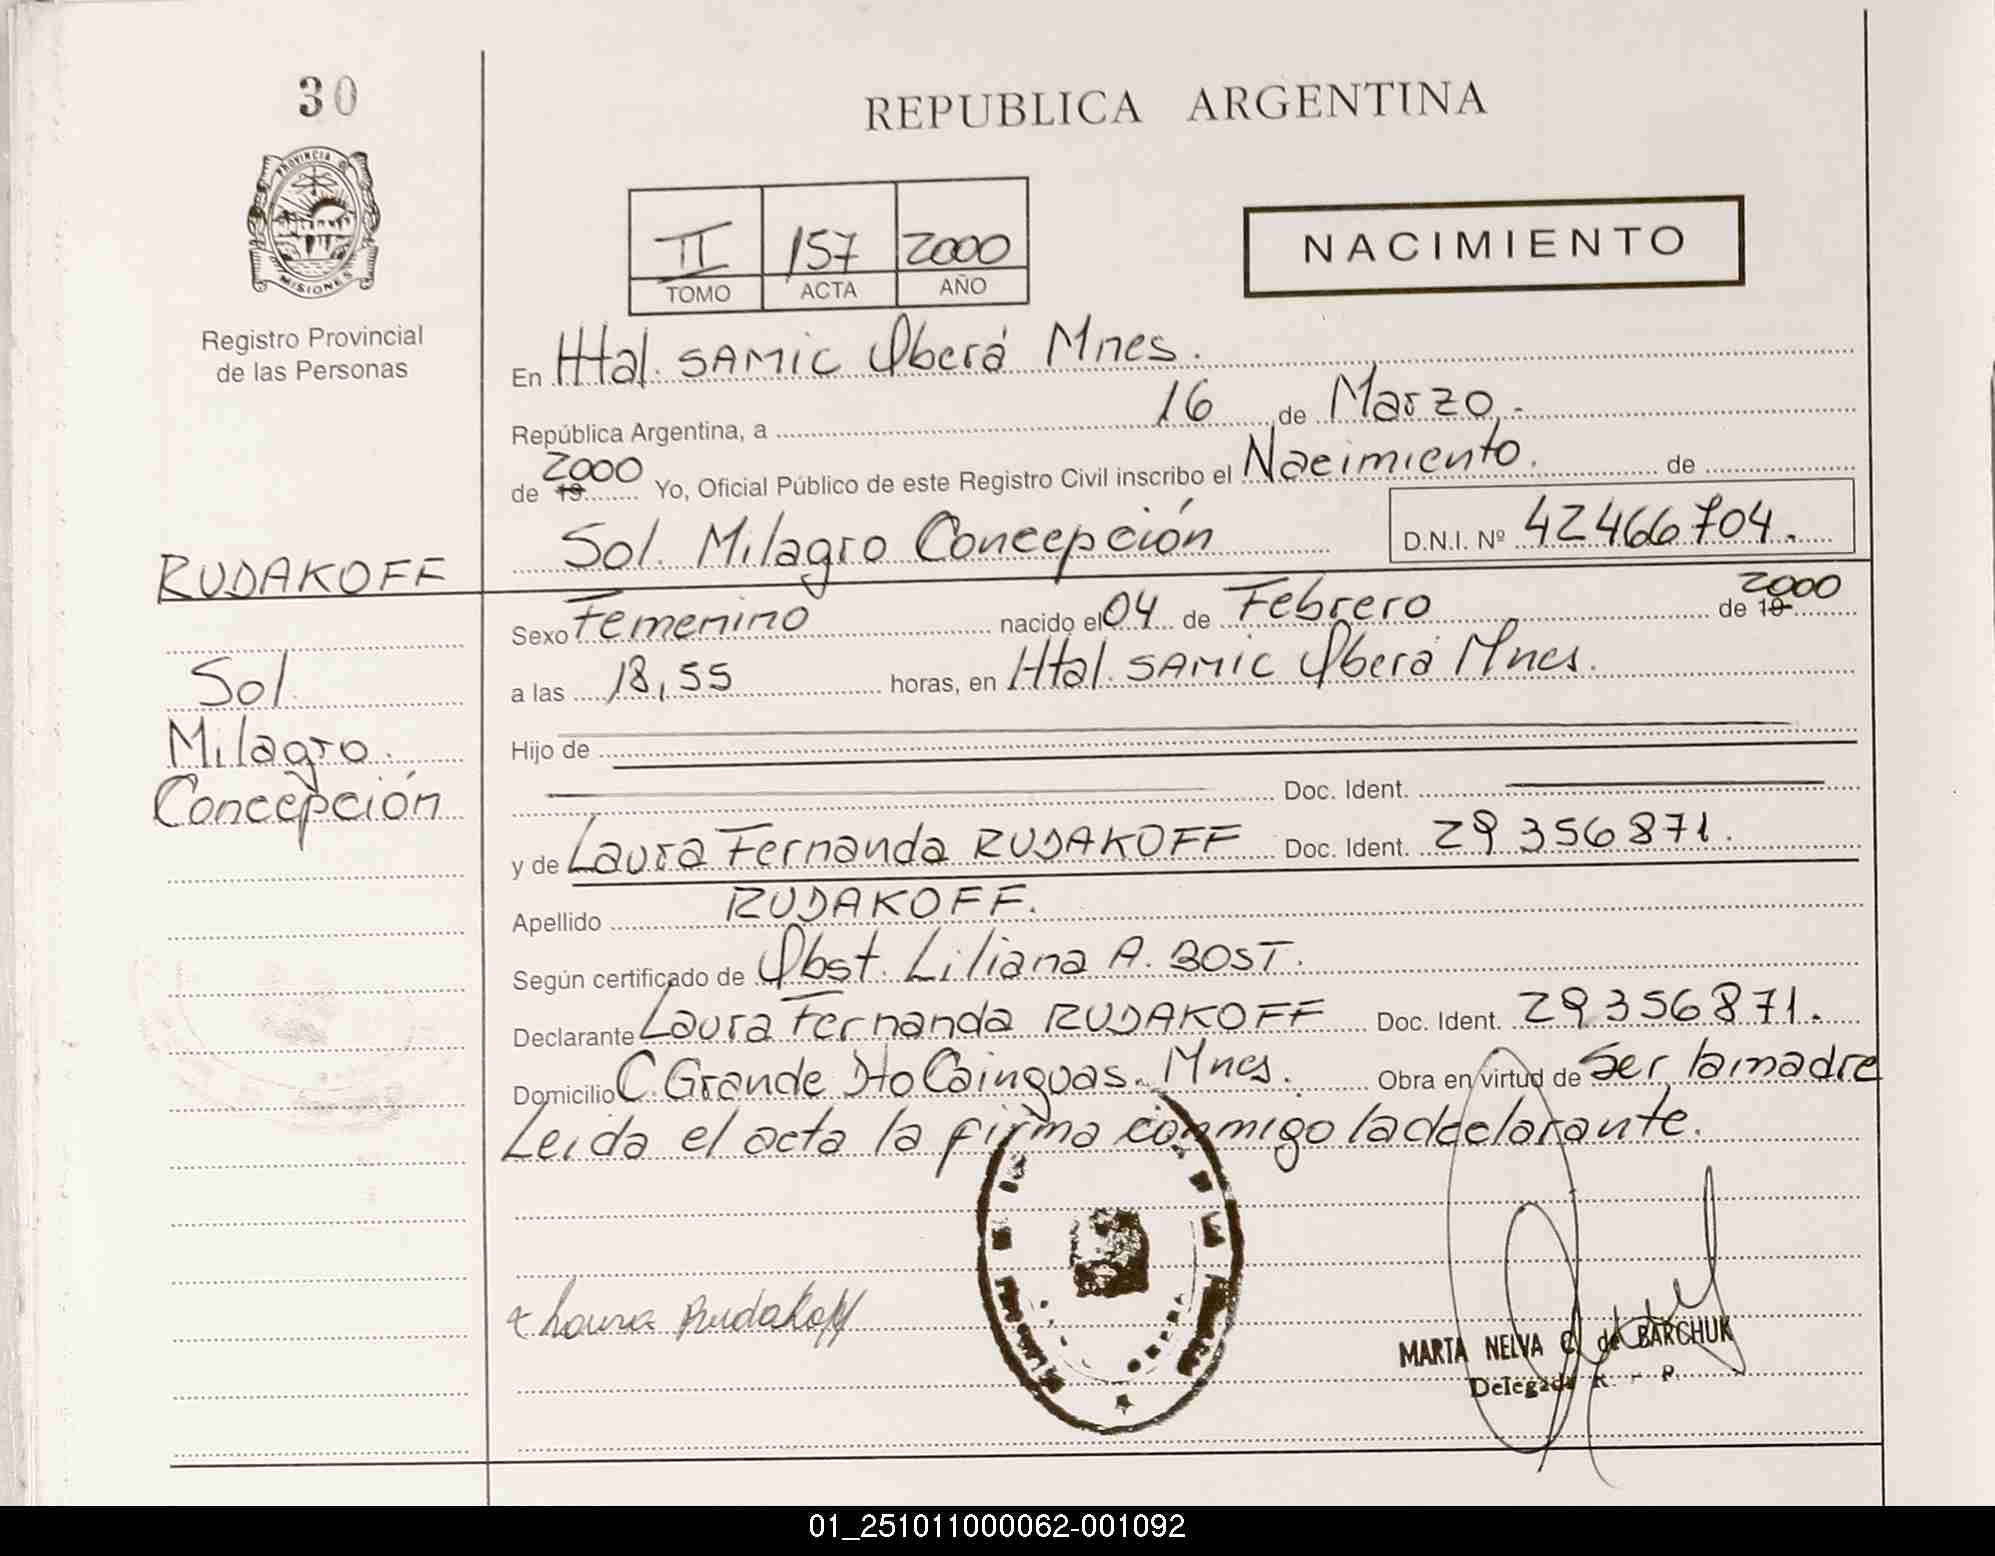 30
REPUBLICA ARGENTINA
PROVINCIA D
MISIONES
Registro Provincial
de las Personas
II 157 2000
TOMO ACTA AÑO
NACIMIENTO
En Htal. SAMIC Oberá Mnes.
República Argentina, a 16 de Marzo.-
de 19 2000 Yo, Oficial Público de este Registro Civil inscribo el Nacimiento. de
Sol Milagro Concepción D.N.I. Nº 42466704.
RUDAKOFF
Sol
Milagro
Concepción
Sexo Femenino nacido el 04 de Febrero de 19 2000
a las 18,55 horas, en Htal. SAMIC Oberá Mnes.
Hijo de
Doc. Ident.
y de Laura Fernanda RUDAKOFF Doc. Ident. 29356871.
Apellido RUDAKOFF.
Según certificado de Obst. Liliana A. BOST.
Declarante Laura Fernanda RUDAKOFF Doc. Ident. 29356871.
Domicilio C. Grande Dto Cainguas. Mnes. Obra en virtud de Ser la madre
Leida el acta la firma conmigo la declarante.
Laura Rudakoff
MARTA NELVA C. de BARCHUK
Delegada R. - P.
01_251011000062-001092